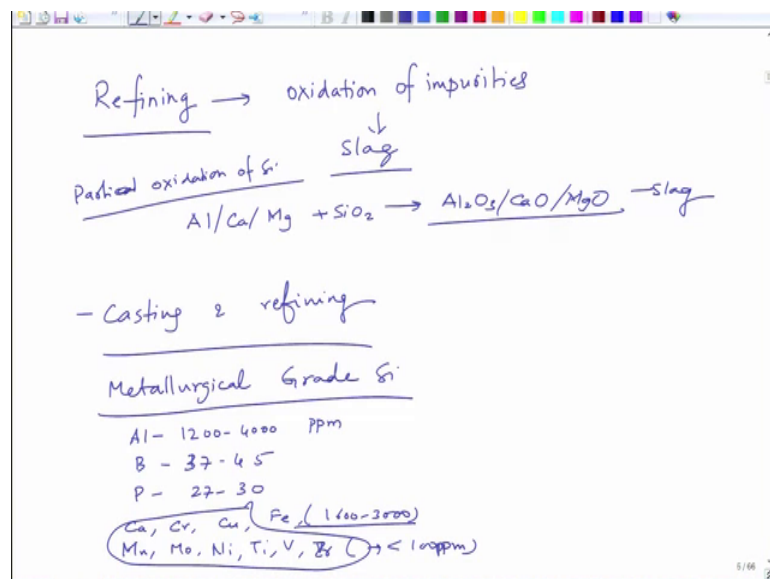 Refining → oxidation of impurities
↓
Slag
Partial oxidation of Si
Al/Ca/Mg + SiO₂ → Al₂O₃/CaO/MgO → Slag
- Casting & refining
Metallurgical Grade Si
Al - 1200-4000 ppm
B - 37-45
P - 27-30
Ca, Cr, Cu, Fe, (1600-3000)
Mn, Mo, Ni, Ti, V, Zr (→ < 100ppm)
5/66